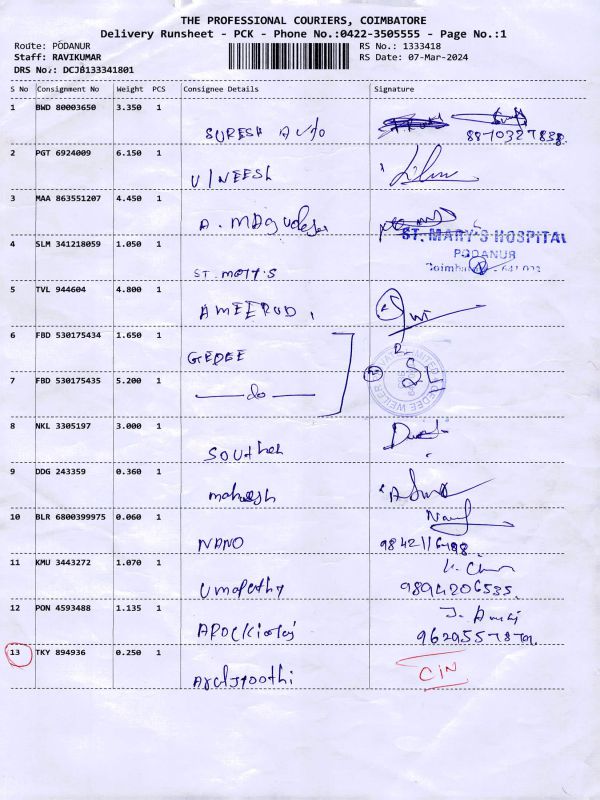 THE PROFESSIONAL COURIERS, COIMBATORE
Delivery Runsheet - PCK - Phone No.:0422-3505555 - Page No.:1
Route: PODANUR
RS No.: 1333418
Staff: RAVIKUMAR
RS Date: 07-Mar-2024
DRS No.: DCJB133341801
S No Consignment No Weight PCS Consignee Details Signature
1 BWD 80003650 3.350 1
SURESH AUTO
8870327838
2 PGT 6924009 6.150 1
VINEESH
3 MAA 863551207 4.450 1
A.
ST. MARY'S HOSPITAL
4 SLM 341218059 1.050 1
PODANUR
ST.
5 TVL 944604 4.800 1
AMEERUD
6 FBD 530175434 1.650 1
GEDEE
7 FBD 530175435 5.200 1
do
8 NKL 3305197 3.000 1
9 DDG 243359 0.360 1
mahesh
10 BLR 6800399975 0.060 1
NANO
11 KMU 3443272 1.070 1
Umapathy
9894206535
12 PON 4593488 1.135 1
13 TKY 894936 0.250 1
CIN